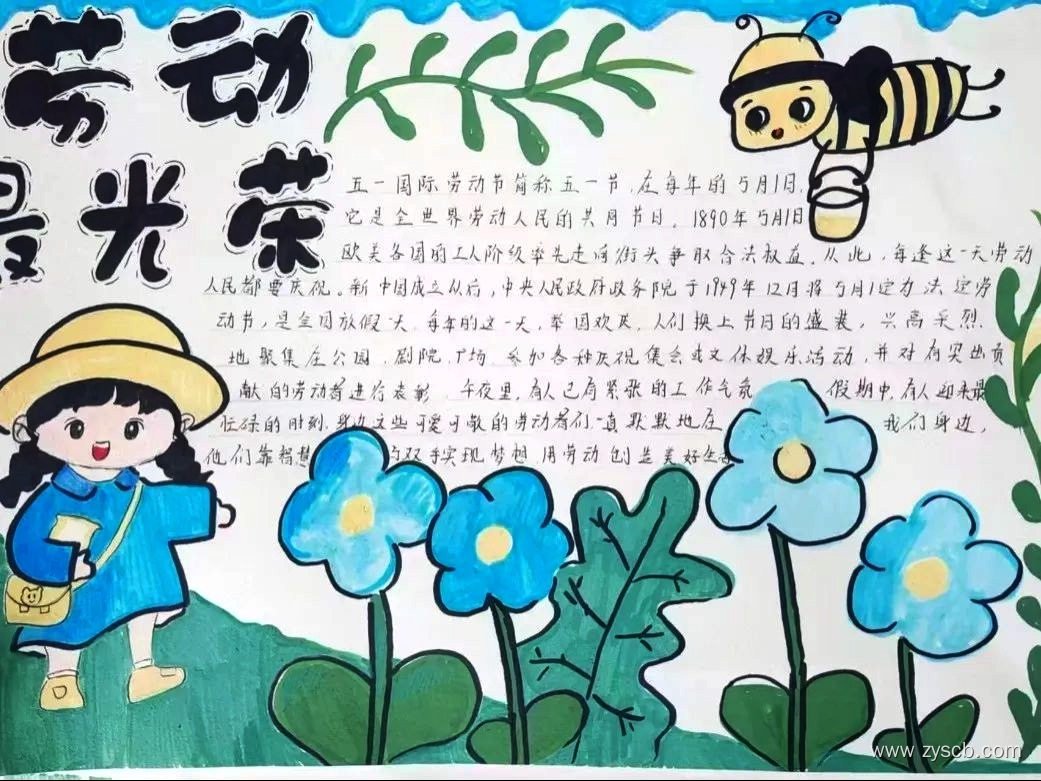 劳动
最光荣
五一国际劳动节简称五一节,在每年的5月1日.
它是全世界劳动人民的共同节日。1890年5月1日
欧美各国的工人阶级率先走向街头争取合法权益。从此,每逢这一天劳动
人民都要庆祝。新中国成立以后,中央人民政府政务院于1949年12月将5月1定为法定劳
动节,是全国放假一天.每年的这一天,举国欢庆.人们换上节日的盛装,兴高采烈.
地聚集在公园.剧院.广场.参加各种庆祝集会或文体娱乐活动,并对有突出贡
献的劳动者进行表彰.午夜里,有人已有紧张的工作气氛 假期中,有人迎来最
忙碌的时刻.身边这些可爱可敬的劳动者们一直默默地在 我们身边,
他们靠智慧 的双手实现梦想.用劳动创造美好生活
www.zyscb.com